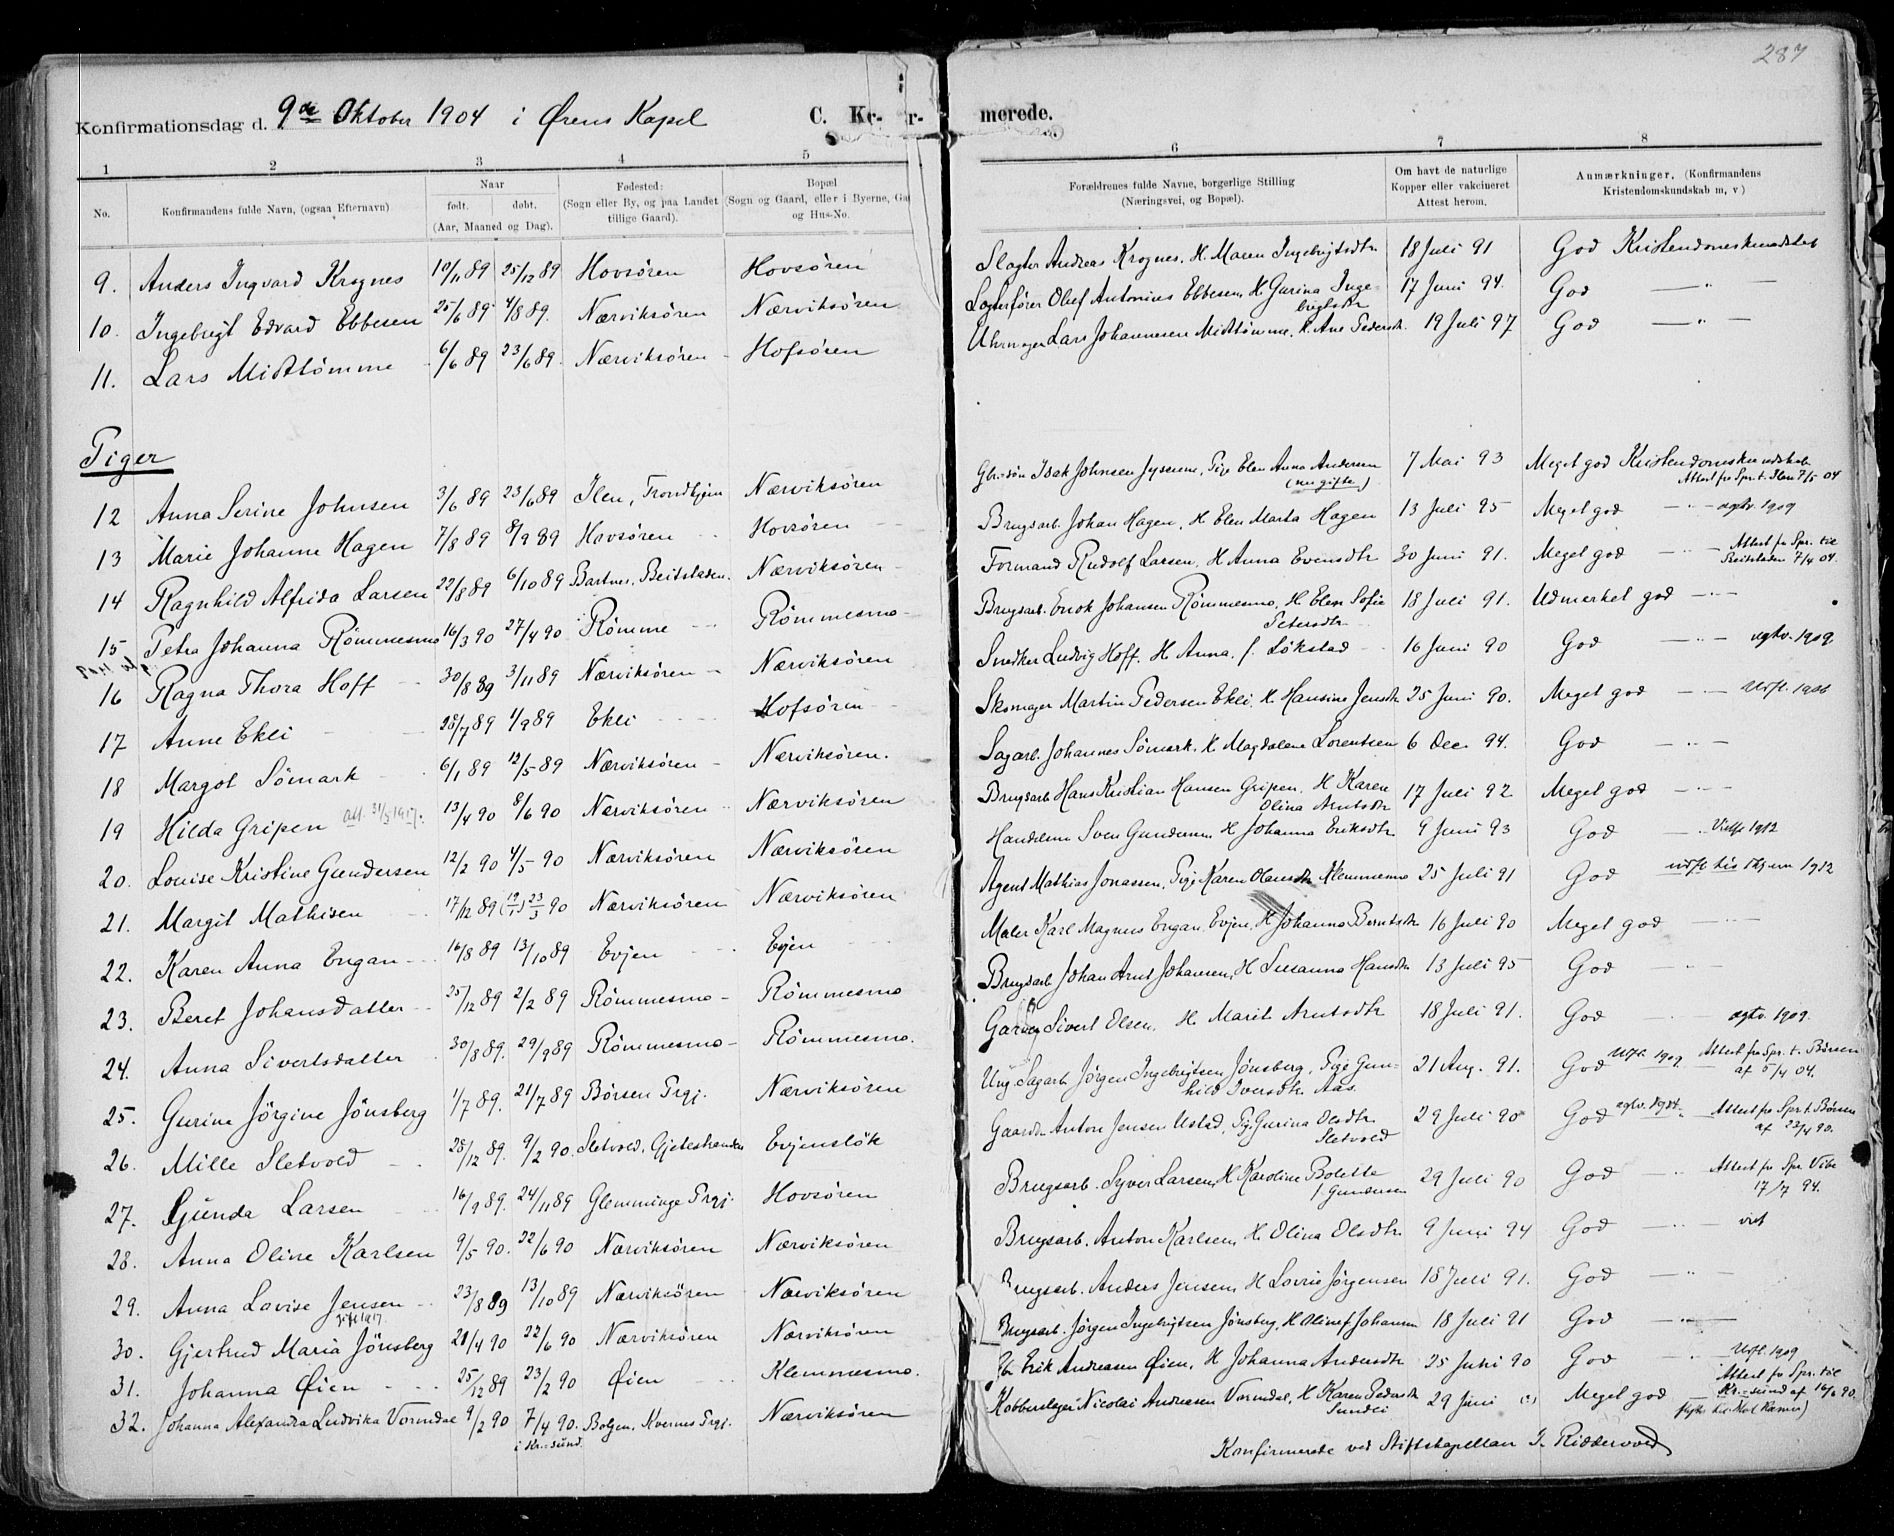 287
Konfirmationsdag d. 9de Oktober 1904 i Ørens Kapel
C. Ko- r-
merede.
1 2 3 4 5 6 7 8
No. Konfirmandens fulde Navn, (ogsaa Efternavn) Naar født. døbt. (Aar, Maaned og Dag). Fødested: (Sogn eller By, og paa Landet tillige Gaard). Bopæl (Sogn og Gaard, eller i Byerne, Ga og Hus-No. Forældrenes fulde Navne, borgerlige Stilling (Næringsvei, og Bopæl). Om havt de naturlige Kopper eller vakcineret Attest herom. Anmærkninger, (Konfirmandens Kristendomskundskab m, v )
9. Anders Ingvard Krognes 10/11 89 25/12 89 Hovsören Hovsören Slagter Andreas Krognes, H. Maren Ingebrigtsdtr 18 Juli 91 God Kristendomskundskab
10. Ingebrigt Edvard Ebbesen 25/6 89 4/8 89. Nærviksören Nærviksören Olaf Antonius Ebbesen, H Gurina Inge-
brigtsdtr 17 Juni 94. God — " —
11. Lars Midttömme 6/6 89 23/6 89. Nærviksören Hofsören Uhrmager Lars Johannesen Midttömme, H. Ane Pedersdtr. 19 Juli 97 God — " —
Piger
12 Anna Serine Johnsen 3/6 89 23/6 89 Ilen, Trondhjem Nærviksören Isak Johnsen, Pige Elen Anna Andersen
(nu gifte) 7 Mai 93 Meget god Kristendomskundskab
Attest fra Spr. t. Ilen 7/5 04
13 Marie Johanne Hagen 7/8 89 8/9 89 Hovsören Hovsören Brugsarb. Johan Hagen, H Elen Marta Hagen 13 Juli 95 Meget god — " — agtv. 1909
14 Ragnhild Alfrida Larsen 22/8 89 6/10 89 Bartnes, Beitstaden. Nærviksören Formand Rudolf Larsen, H Anna Evensdtr 30 Juni 91. Meget god — " — Attest fra Spr. til
Beitstaden 7/4 04.
15 Petra Johanna Römmesmo 16/3 90 27/4 90 Römme Römmesmo Brugsarb. Enok Johansen Römmesmo, H Elen Sofie
Petersdtr 18 Juli 91. Udmerket god — " —
16 Ragna Thora Hoff 30/8 89 3/11 89 Nærviksören Nærviksören Snedker Ludvig Hoff. H Anna, f. Lökstad 16 Juni 90 God — " — agtv. 1909
17 Anne Ekli 28/7 89 1/9 89 Ekli Hofsören Skomager Martin Pedersen Ekli, H. Hansine Jensdtr 25 Juni 90. Meget god — " — Udfl. 1906
18 Margot Sömark 6/1 89 12/5 89 Nærviksören Nærviksören. Sagarb. Johannes Sömark, H Magdalena Lorentsen 6 Dec. 94. God — " —
19 Hilda Gripen att. 31/3 1917. 13/4 90 8/6 90 Nærviksören Nærviksören Brugsarb Hans Kristian Hansen Gripen, H Karen
Olina Arntsdtr 17 Juli 92 Meget god — " —
20. Louise Kristine Gundersen 12/2 90 4/5 90 Nærviksören Nærviksören Handelsm Sven Gundersen H Johanna Eriksdtr 9 Juni 93 God — " — 1912
21. Margit Mathisen 17/12 89 (19/1) 23/3 90 Nærviksören Nærviksören Agent Mathias Jonassen, Pige Karen Olausdtr Klemmesmo 25 Juli 91 God udfl. til Thjem 1912
22. Karen Anna Engan 16/8 89 13/10 89 Evjen Evjen Maler Karl Magnus Engan, Evjen, H Johanna Berntsdtr 16 Juli 90 Meget god — " —
23. Beret Johansdatter 25/12 89 2/2 89 Römmesmo Römmesmo Brugsarb Johan Arnt Johansen, H Susanna Hansdtr 13 Juli 95 God — " —
24. Anna Sivertsdatter 30/8 89. 29/9 89 Römmesmo Römmesmo. Garver Sivert Olsen, H. Marit Arntsdtr 18 Juli 91. God — " — agtv. 1909.
25. Gurine Jörgine Jönsberg 1/7 89. 21/7 89 Börsen Prgj. Nærviksören Ung. Sagarb Jörgen Ingebrigtsen Jönsberg, Pige Gun-
hild Iversdtr Aas. 21 Aug. 91. God Udfl. 1909. Attest fra Spr. t. Börsen
af 5/4 04.
26. Mille Sletvold 28/12 89. 9/2 90. Sletvold, Gjetestranden Evjenslök Gaardm Anton Jensen Ustad, Pig. Gurina Olsdtr
Sletvold 29 Juli 90 God agtv. Attest fra Spr. t. Börsen
af 23/4 90.
27. Gunda Larsen 16/9 89. 24/11 89 Glemminge Prgj. Hovsören Brugsarb. Syver Larsen, H Karoline Bolette
f Gundersen 29 Juli 90 God — " — Attest fr Spr. Vibe
17/7 94.
28. Anna Oline Karlsen 9/5 90. 22/6 90 Nærviksören Nærviksören Brugsarb. Anton Karlsen, H Olina Olsdtr 9 Juni 94 God — " —
29. Anna Lovise Jensen 23/8 89 13/10 89 Nærviksören Nærviksören Brugsarb. Anders Jensen, H Lovise Jörgensen 18 Juli 91. God — " —
30. Gjertrud Maria Jönsberg 21/4 90 22/6 90 Nærviksören Nærviksören Brugsarb. Jörgen Ingebrigtsen Jönsberg, H Johansen 18 Juli 91 God — " —
31. Johanna Öien 25/12 89 23/2 90 Öien Klemmesmo. Erik Andreasen Öien, H Johanna Andersdtr 25 Juni 90 God — " — Udfl. 1909
32. Johanna Alexandra Ludvika Vormdal 9/2 90 7/4 90. Bolgen, Kvernes Prgj. Nærviksören Kobberslager Nicolai Andreasen Vormdal, H Karen Pedersdtr
Sundli 29 Juni Meget god — Attest fra Spr. til
i Kr.-sund. Kr.-sund af 16/6 90.
Konfirmerede ved Stiftskapellan J. Riddervold